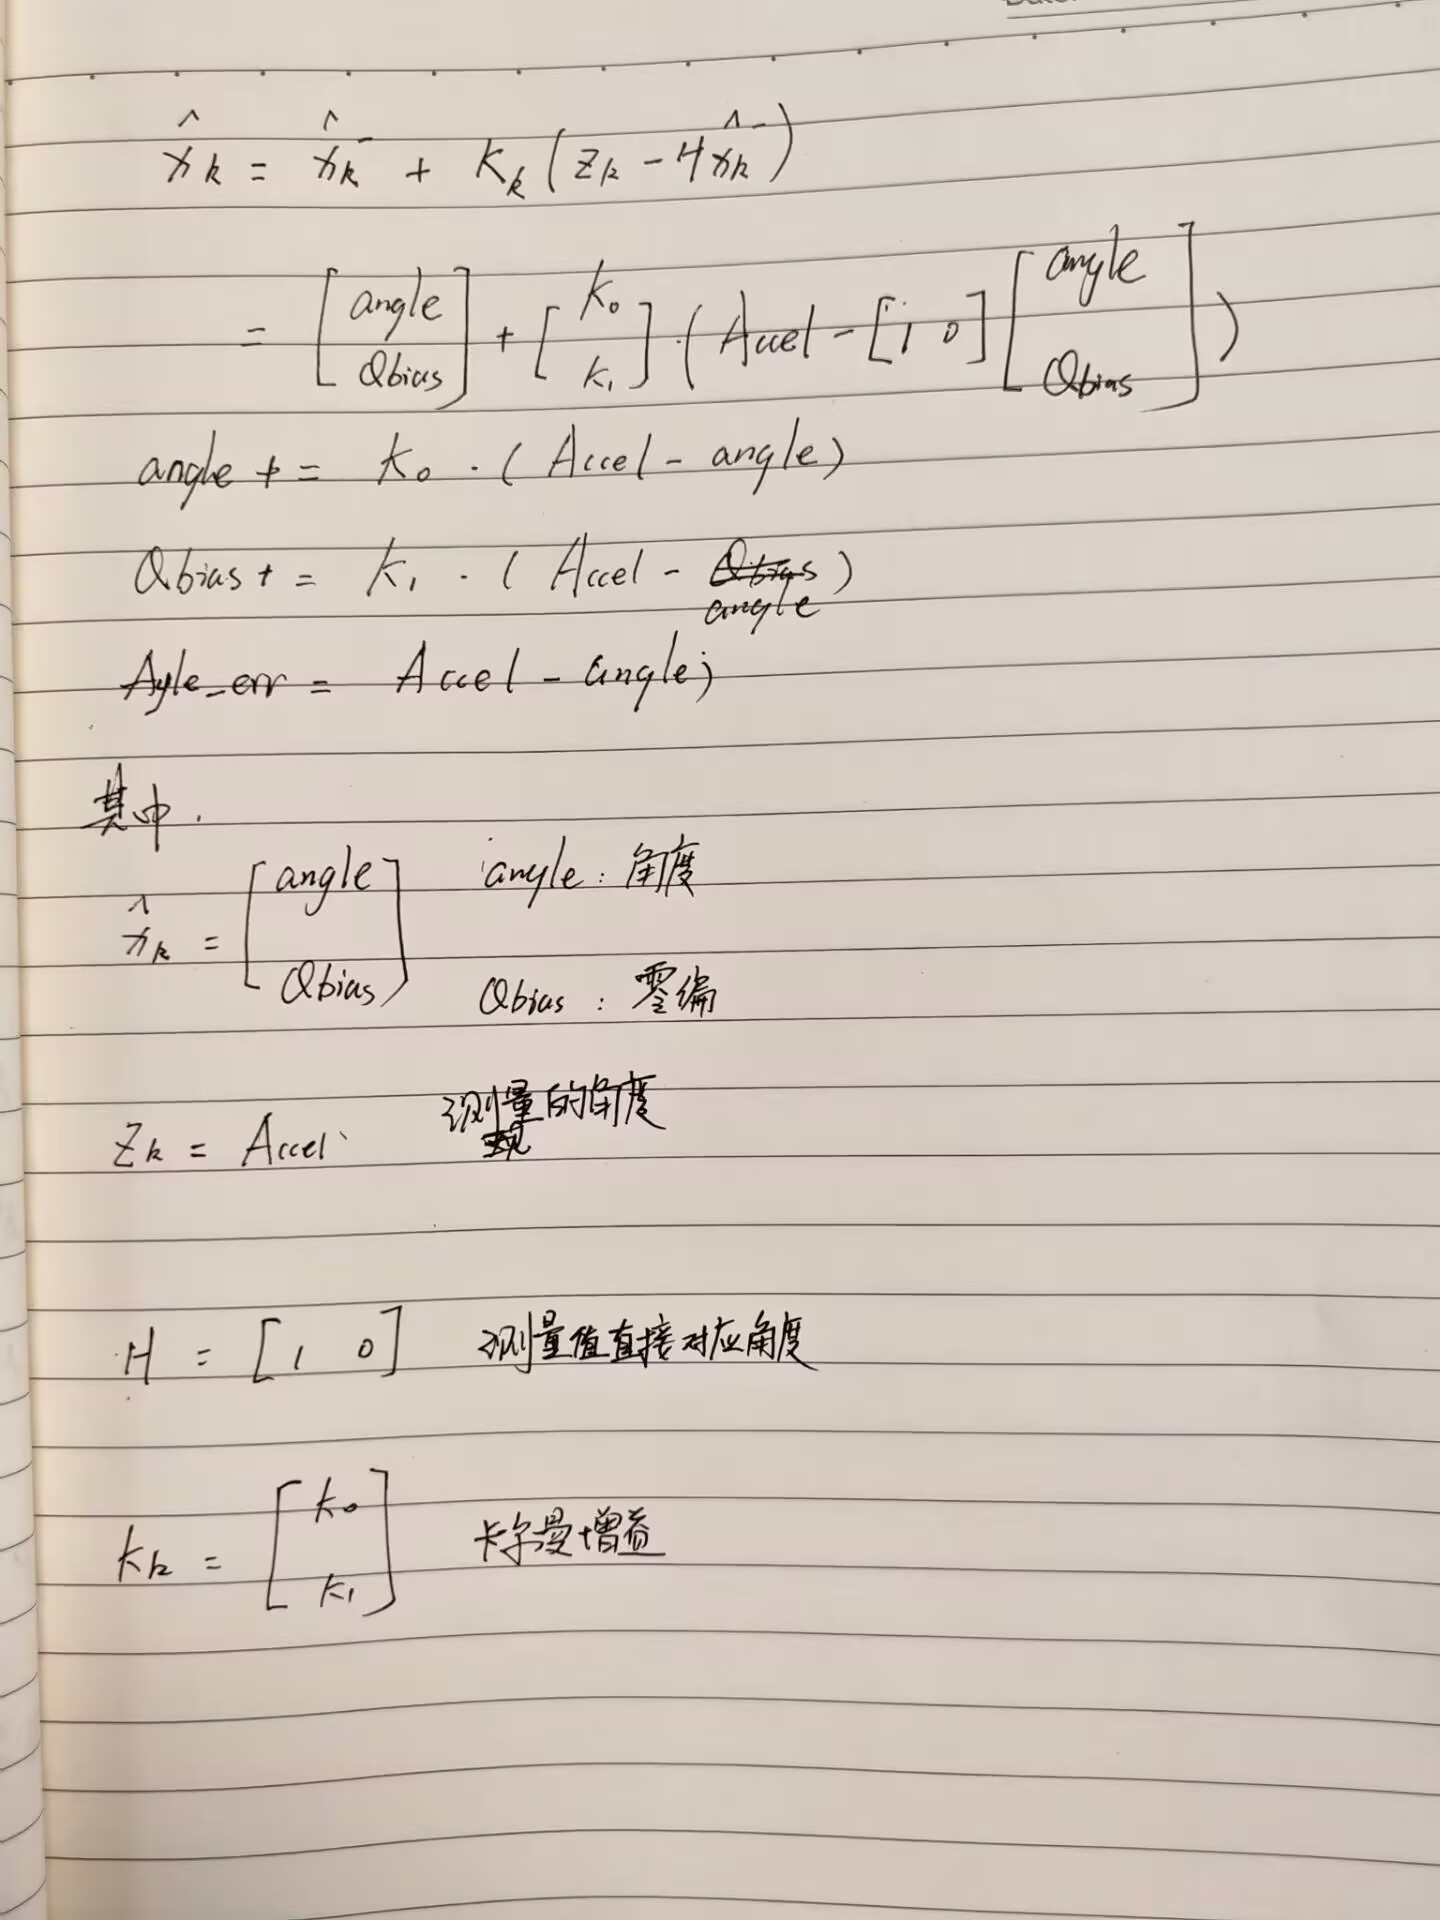 x̂k = x̂k⁻ + Kk (zk - Hx̂k⁻)
= [angle Qbias] + [K0 K1] · (Accel - [1 0] [angle Qbias])
angle += K0 · (Accel - angle)
Qbias += K1 · (Accel - Qbias)
angle
Agle_err = Accel - angle;
其中.
x̂k = [angle Qbias] angle: 角度
Qbias: 零编
zk = Accel 测量的角度
H = [1 0] 测量值直接对应角度
Kk = [K0 K1] 卡尔曼增益